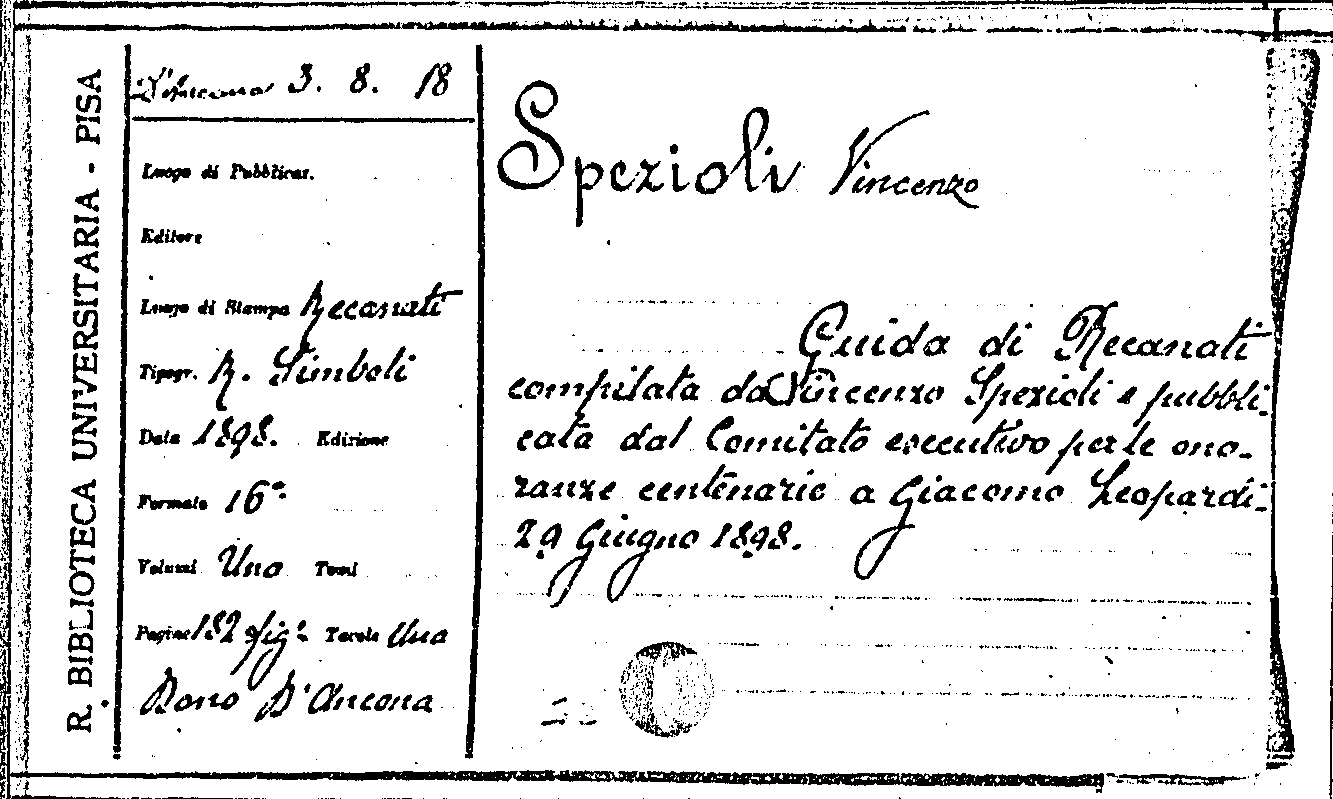 R. BIBLIOTECA UNIVERSITARIA - PISA
D'Ancona 3. 8. 18
Luogo di Pubblicaz.
Editore
Luogo di Stampa Recanati
Tipogr. R. Simboli
Data 1898. Edizione
Formato 16°.
Volumi Uno Tomi
Pagine 182 fig.e Tavole Una
Dono D'Ancona
Spezioli Vincenzo
Guida di Recanati
compilata da Vincenzo Spezioli e pubbli-
cata dal Comitato esecutivo per le ono-
ranze centenarie a Giacomo Leopardi.
29 Giugno 1898.